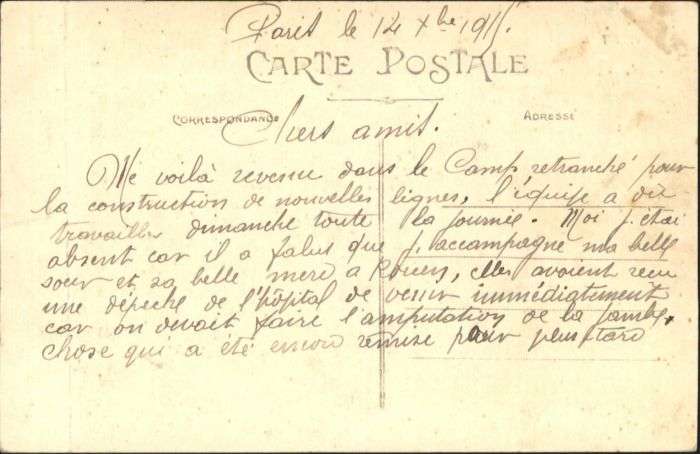 Paris le 14 Xbre 1915.
CARTE POSTALE
CORRESPONDANCE
ADRESSE
Chers amis.
Me voilà revenu dans le Camp retranché pour
la construction de nouvelles lignes, l'équipe a dû
travailler dimanche toute la journée. Moi j'étai
absent car il a falus que j'accompagne ma belle
sœur et sa belle mere a Rouen, elles avaient recu
une dépeche de l'hôpital de venir immédiatement
car on devait faire l'amputation de la jambe,
chose qui a été encore remise pour plus tard